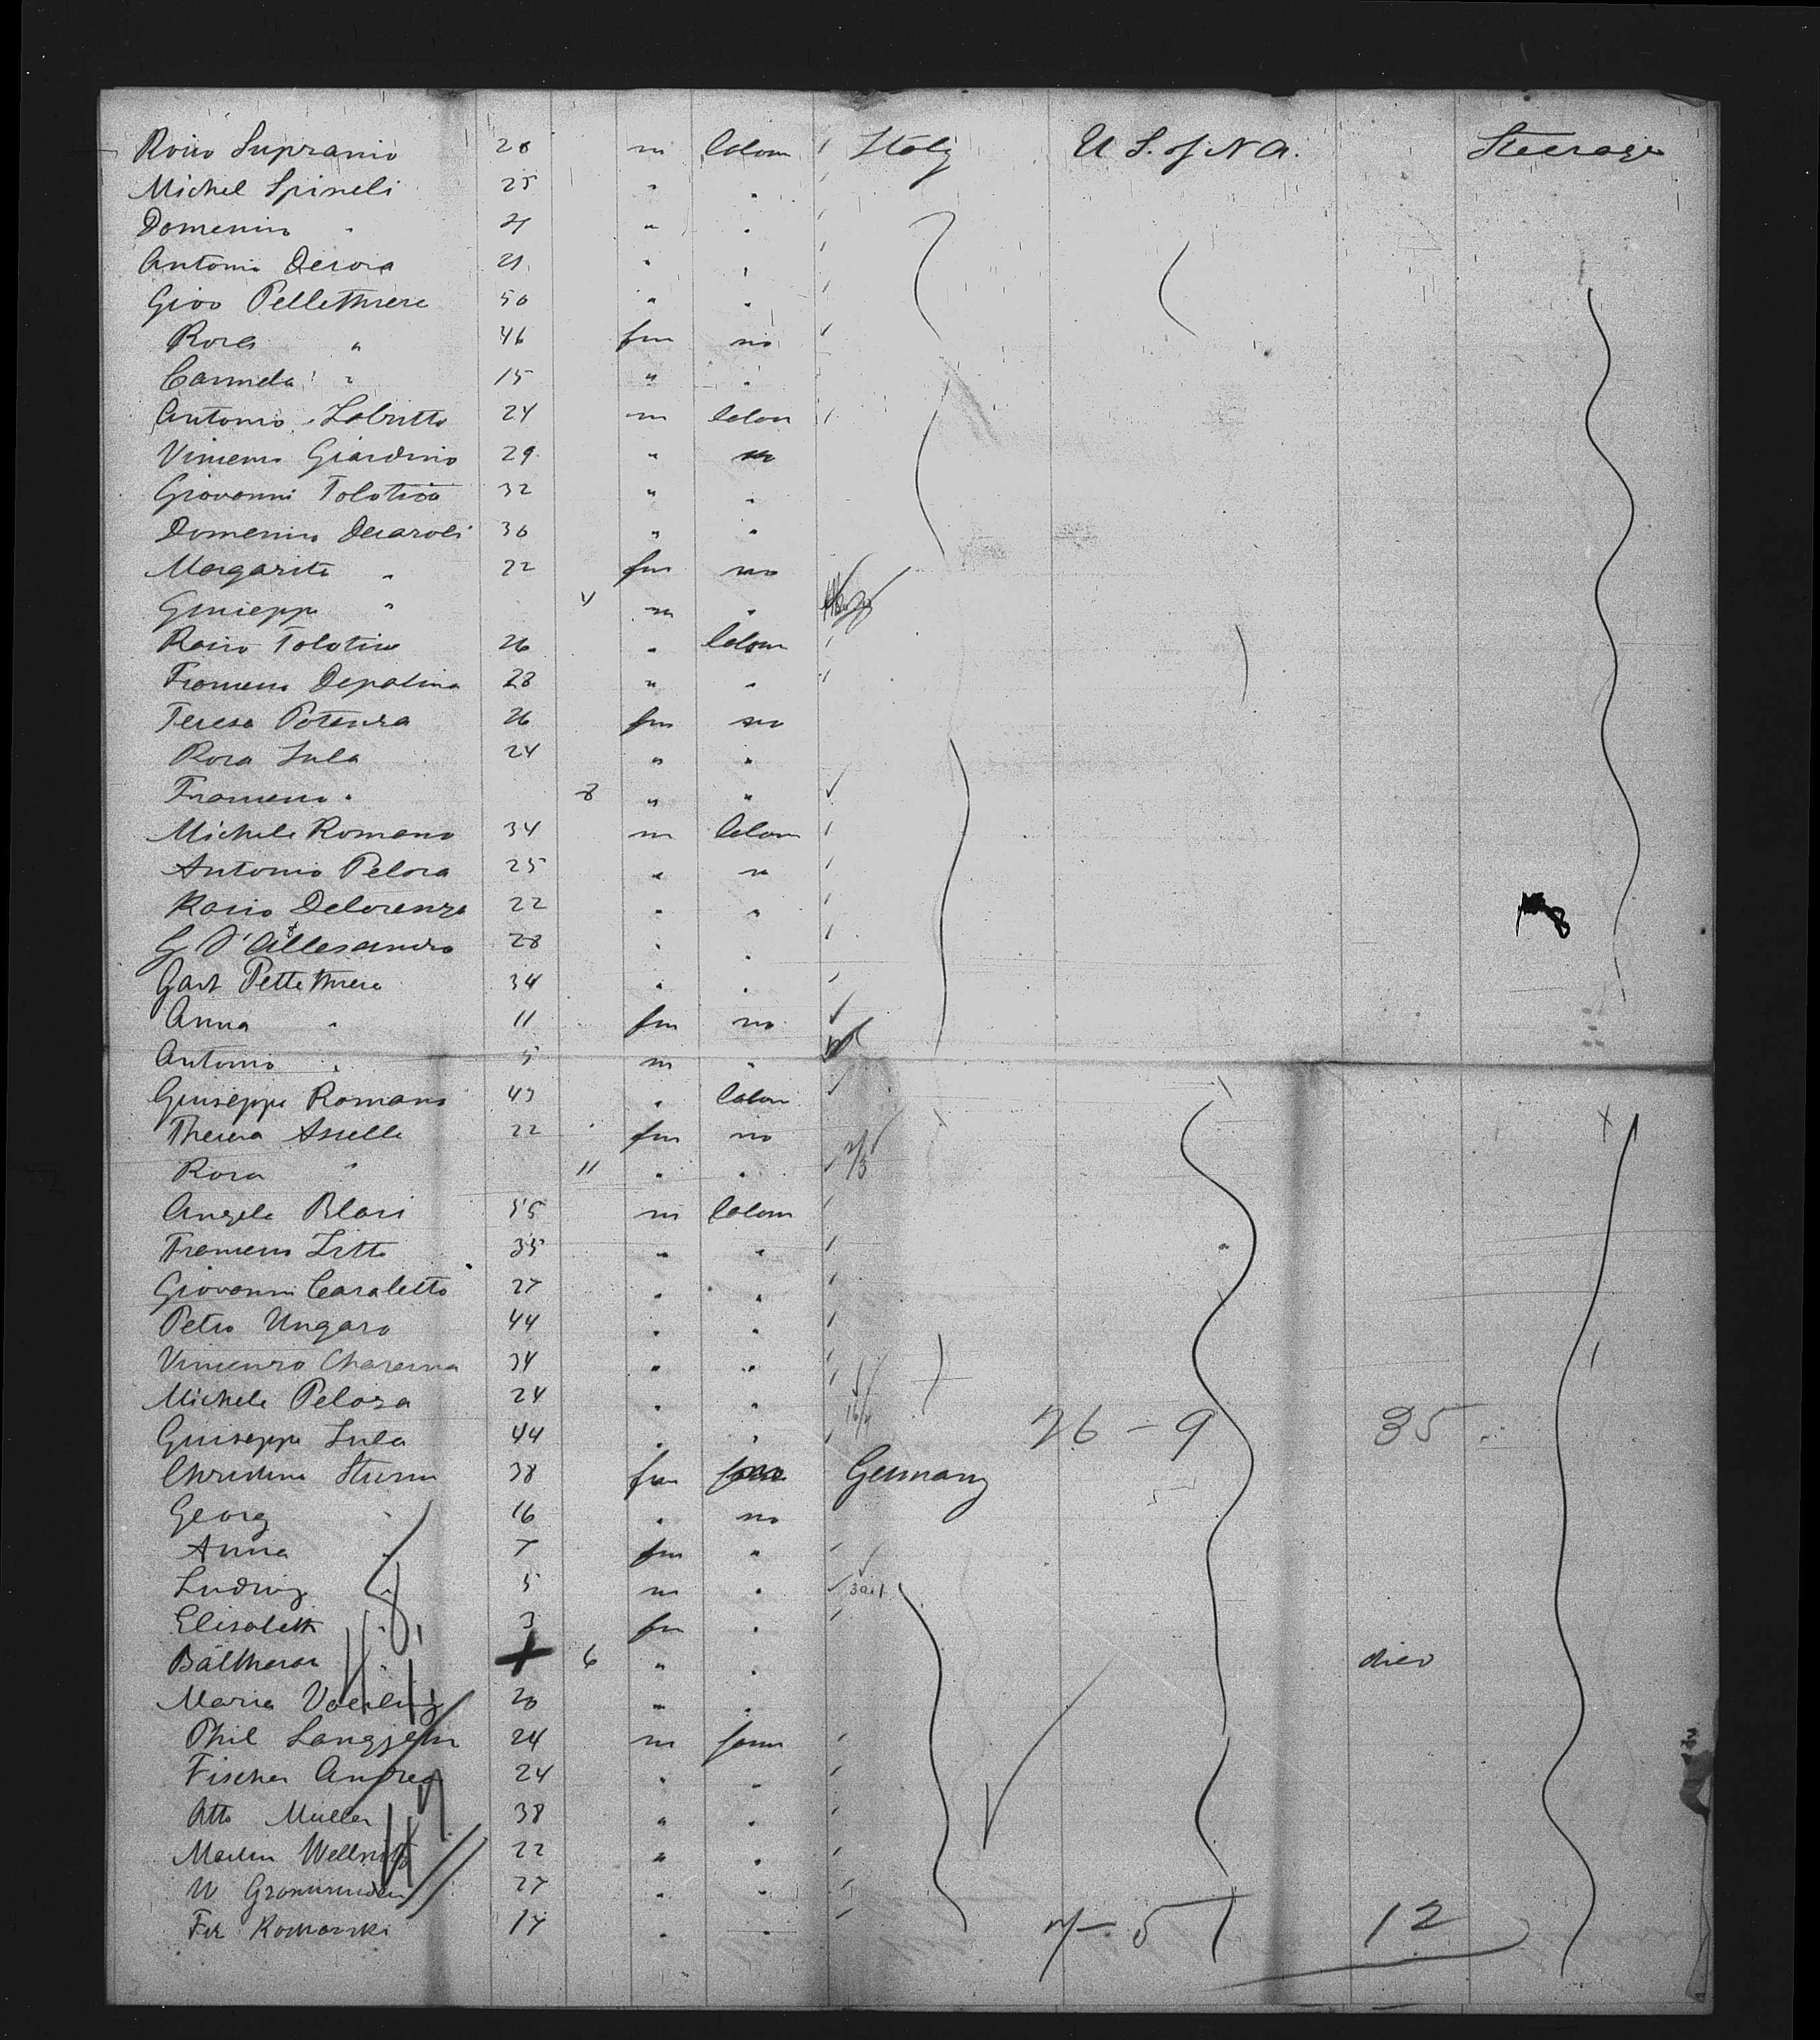 Rocco Supranio 28 m labour Italy U S. of N A. Steerage
Michel Spineli 25 " "
Domenico " 21 " "
Antonio Derora 21 " "
Giov Pellethiere 50 " "
Rosa " 46 fm no
Carmela " 15 " "
Antonio Labritto 24 m labour
Vincenzo Giardino 29 " "
Giovanni Tolotico 32 " "
Domenico Decaroli 36 " "
Margarita " 22 fm no
Giuseppe " 4 m "
Rocco Tolotico 26 " labour
Francesco Depalma 28 " "
Teresa Potenza 26 fm no
Rosa Lula 24 " "
Francesco " 8 " "
Michele Romano 34 m labour
Antonio Pelosa 25 " "
Rocco Delorenzo 22 " "
G D'Allesandro 28 " "
Pellethiere 34 " "
Anna " 11 fm no
Antonio " 5 m "
Giuseppe Romano 43 " labour
Theresa Aselle 22 fm no
Rosa " 11 " "
Angelo Blasi 55 m labour
Francesco Litto 35 " "
Giovanni Caraletto 27 " "
Petro Ungaro 44 " "
Vincenzo 34 " "
Michele Pelosa 24 " "
Giuseppe Lula 44 " " 26 - 9 35
Christina Sturm 38 fm Germany
Georg " 16 " no
Anna " 7 fm "
Ludwig " 5 m "
Elisabeth " 3 fm "
Balthasar " 6 " " died
Maria 20 " "
Phil 24 m farm
Fischer Andreas 24 " "
Otto Muller 38 " "
Martin 22 " "
W 27 " "
17 " " 7 - 5 12